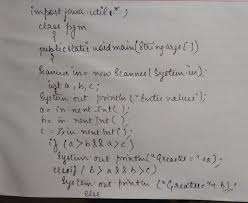 import java.util.*;
class pgm
{
public static void main(String args[])
{
Scanner in = new Scanner(System.in);
int a, b, c;
System.out.println("Enter values");
a = in.nextInt();
b = in.nextInt();
c = in.nextInt();
if (a>b && a>c)
System.out.println("Greater="+a);
else if (b>a && b>c)
System.out.println("Greater="+b);
else